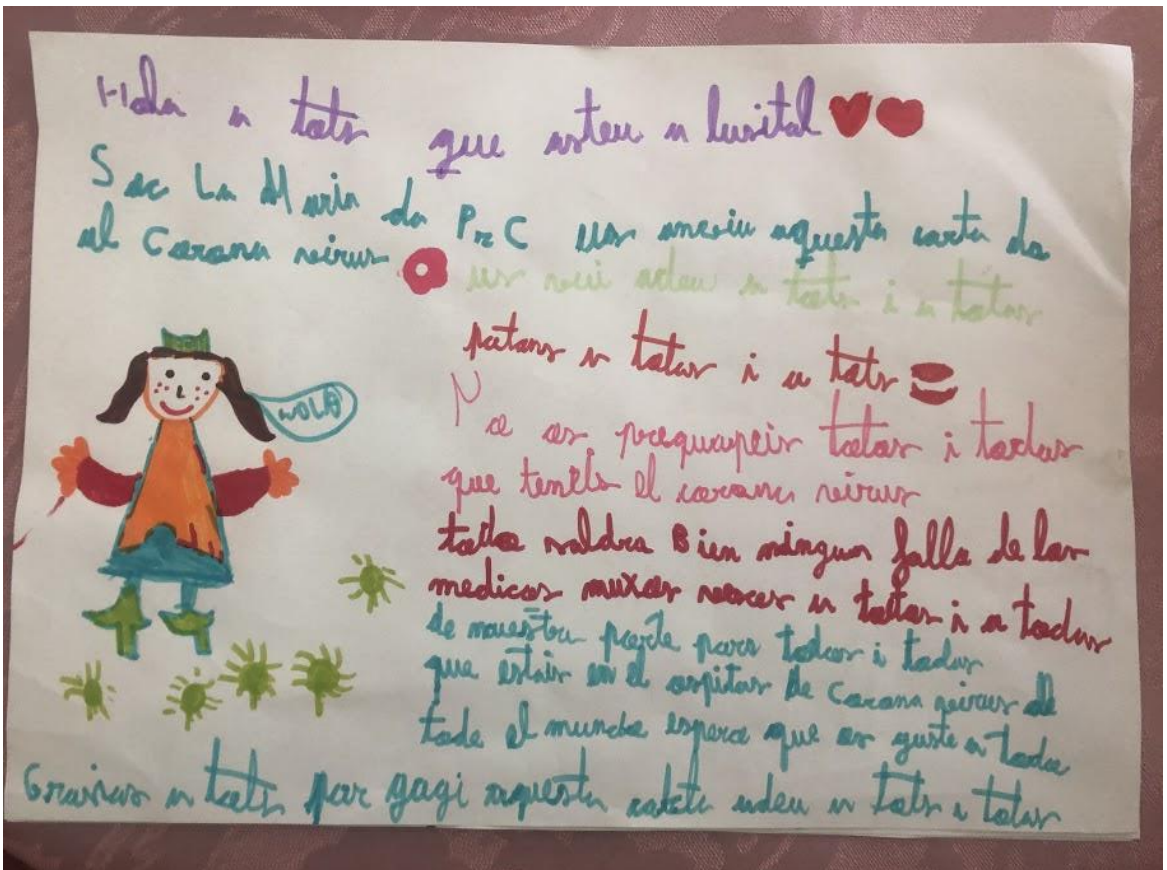 Hola a tots que asteu a lusital
Soc La Maria da P2 C us anviu aquesta carta da
al Corona veirus
us veui adeu a tots i a totas
patons a totas i a tots
HOLA
No os prequapeis totos i todas
que teneis el corona veirus
todo saldra Bien ningun falla de los
medicos muxos vesos a totos i a todas
de nuestra parte para todos i todas
que estais en el ospitar de Corona veirus de
todo el mundo espero que os guste a todos
Grasias a tots par gagi aquesta adeu a tots i totas